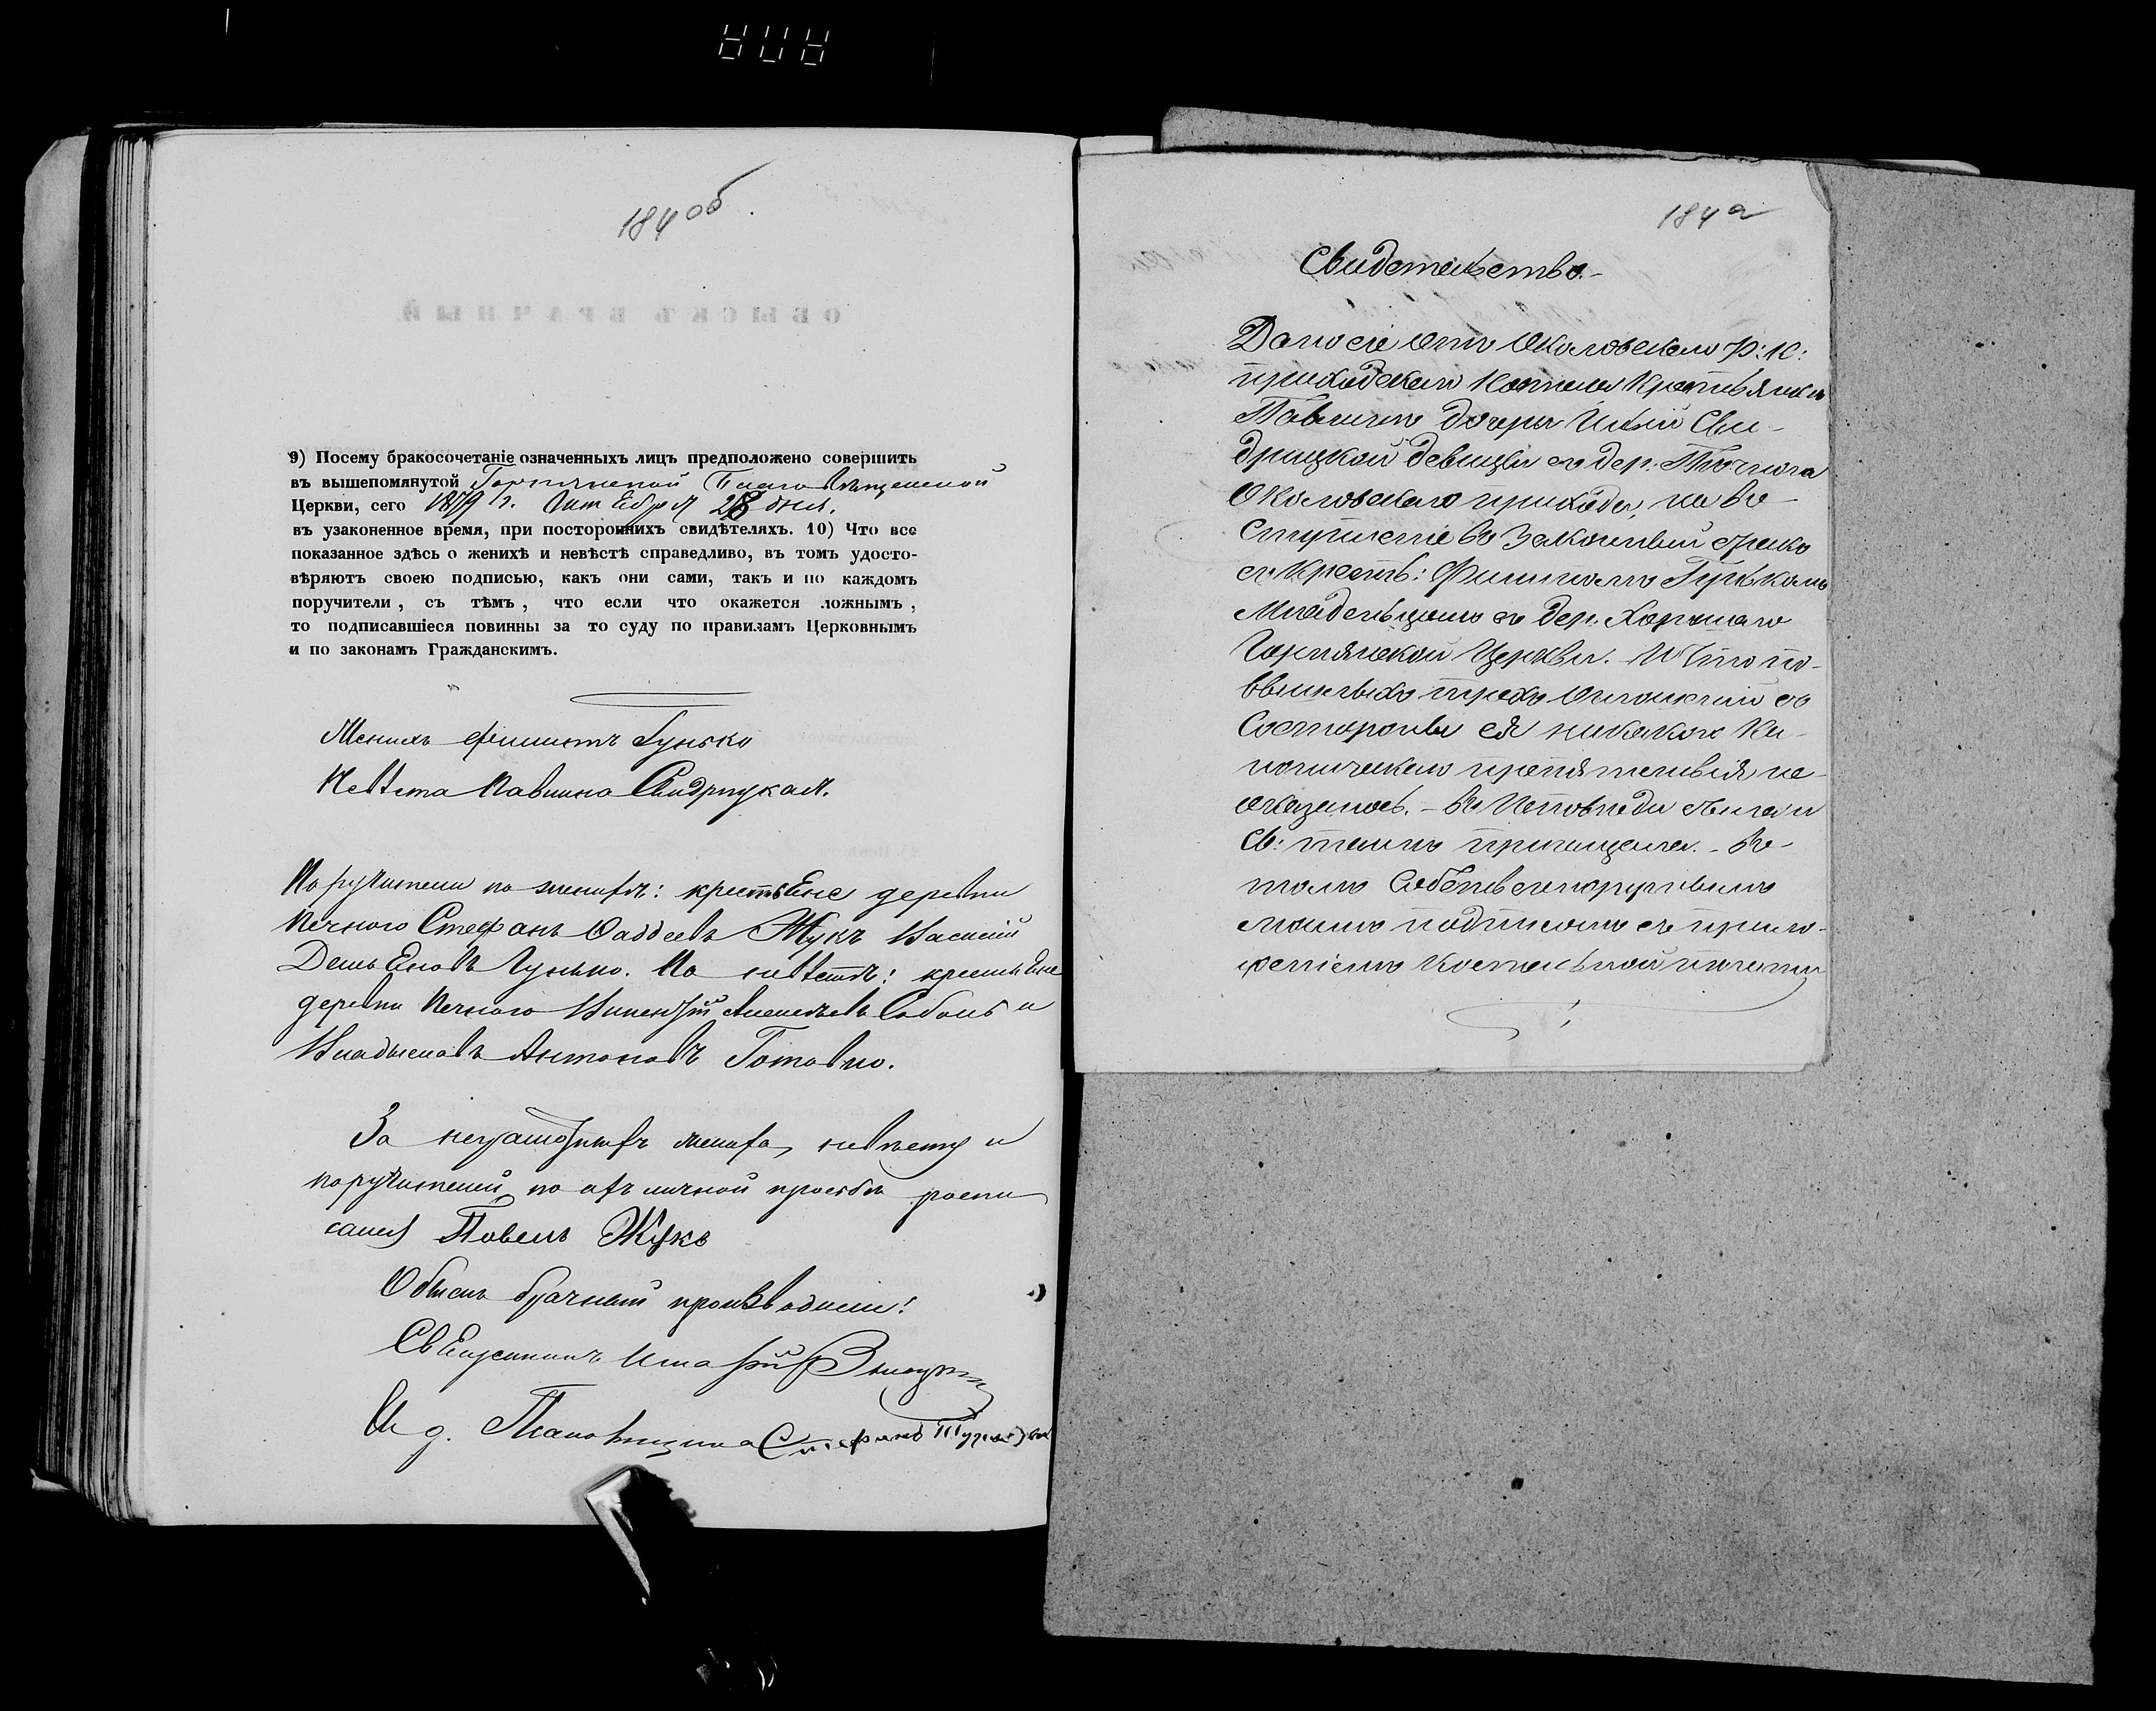 184 об.
9) Посему бракосочетаніе означенныхъ лицъ предположено совершить
въ вышепомянутой Благовѣщенской
Церкви, сего 1879 г. Октября 28 дня.
въ узаконенное время, при постороннихъ свидѣтеляхъ. 10) Что все
показанное здѣсь о женихѣ и невѣстѣ справедливо, въ томъ удосто-
вѣряютъ своею подписью, какъ они сами, такъ и по каждомъ
поручители, съ тѣмъ, что если что окажется ложнымъ,
то подписавшіеся повинны за то суду по правиламъ Церковнымъ
и по законамъ Гражданскимъ.
Женихъ Филипъ Гунько
Невѣста Павлина Свидрицкая.
Поручители по женихѣ: крестьяне деревни
Печного Стефанъ Фаддеевъ Жукъ Василій
Демьяновъ Гунько. По невѣстѣ: крестьяне
деревни Печного Викентій Соболь и
Владиславъ Антоновъ Готовко.
За неграмотныхъ жениха, невѣсту и
поручителей, по ихъ личной просьбѣ роспи
сался Павелъ Жукъ
Обыскъ брачный производили:
Священникъ
И д. Псаломщика Стефанъ
184 а
Свидетельство.-
Дано сіе отъ Околовскаго Р: К:
приходскаго Костела Крестьянкѣ
Павлинѣ дочери Сви-
дрицкой девицы съ дер. Печнога
Околовскаго прихода, на вс-
тупленіе въ Законный бракъ
съ Крестьян: Филипомъ Гунькомъ
съ дер.
Церкви. И что по
трехъ оглашеній со
Состороны ея никакого Ка-
ноническаго препятствія не
оказалось. - Въ Исповѣди была и
Св: таинъ причащена. - Въ
томъ Собственноручнымъ
моимъ подписомъ съ прило-
женіемъ Костельной печати